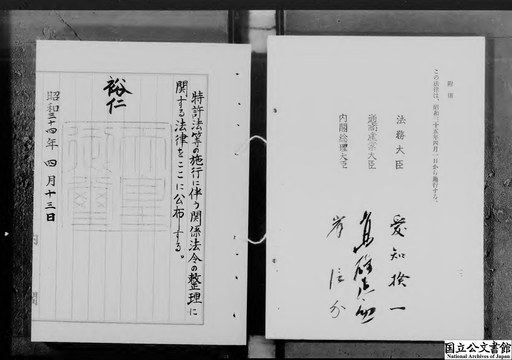 特許法等の施行に伴う関係法令の整理に
関する法律をここに公布する。
裕仁
昭和三十四年四月十三日
附則
この法律は、昭和三十五年四月一日から施行する。
法務大臣 愛知揆一
通商産業大臣
内閣総理大臣 岸信介
国立公文書館
National Archives of Japan